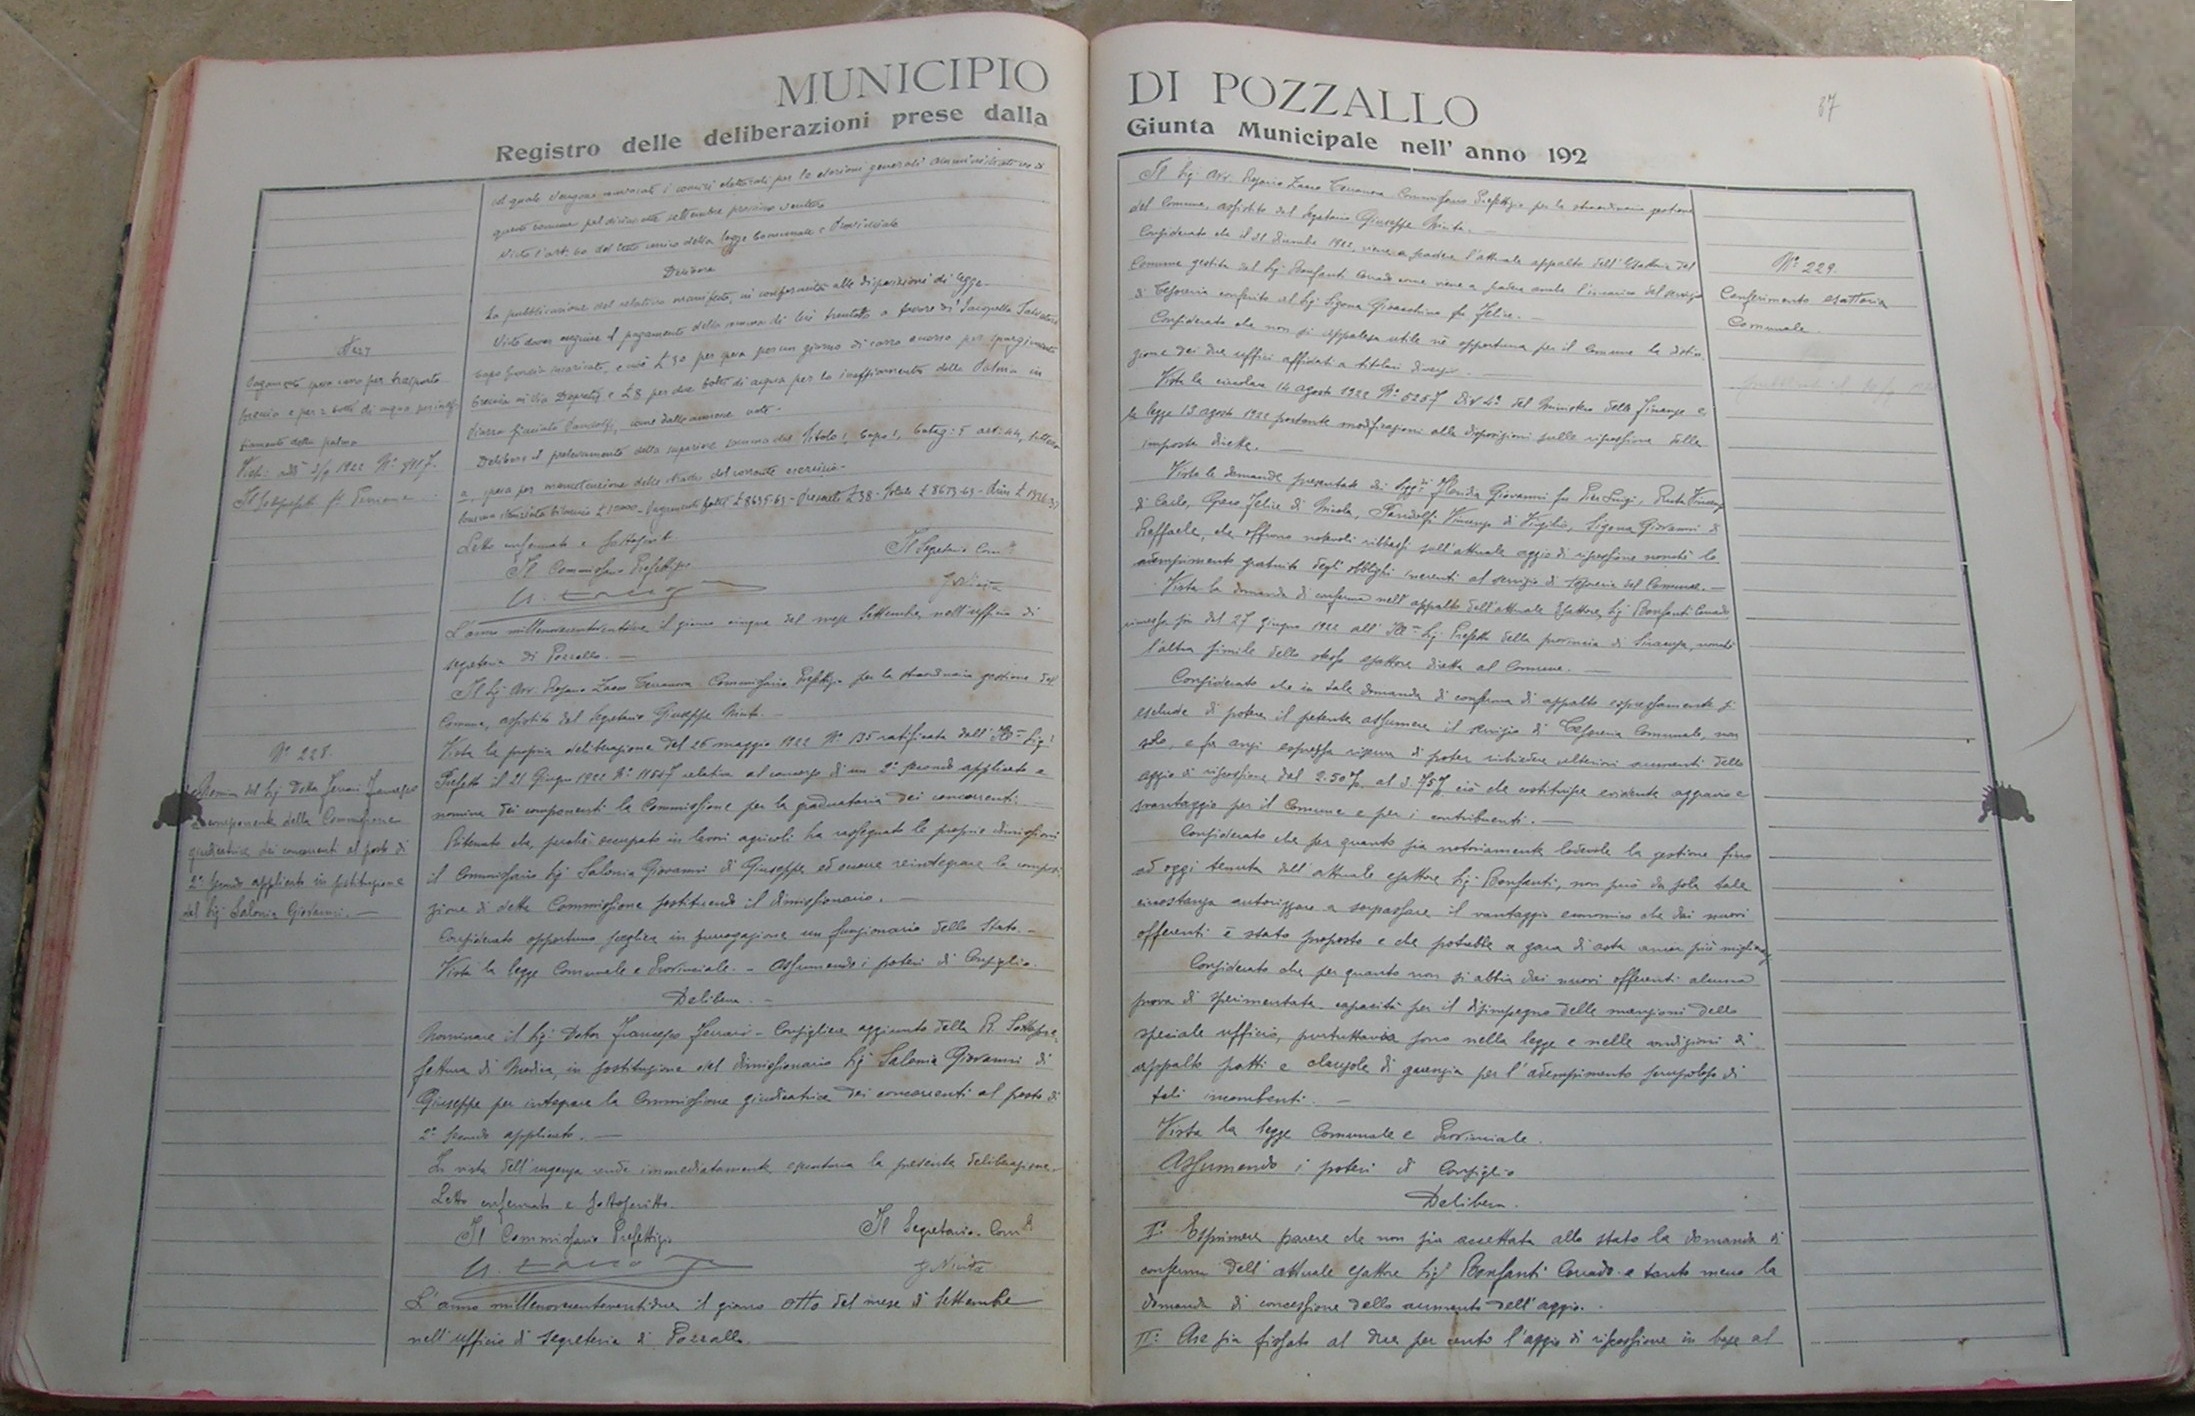 MUNICIPIO
Registro delle deliberazioni prese dalla
al quale vengono convocati i comizi elettorali per le elezioni generali amministrative di
questo comune pel settembre prossimo venturo
Visto l'art. 60 del testo unico della legge Comunale e Provinciale
Delibera
La pubblicazione del relativo manifesto, in conformità alle disposizioni di legge.
Visto dover eseguire il pagamento della somma di lire trentotto a favore di Salvatore
capo guardia incaricato, e cioè £ 30 per spesa per un giorno di carro per spargimento
breccia in Via Depretis e £ 8 per due botti di acqua per lo inaffiamento della Palma in
Piazza come dalle note.
Delibera il prelevamento della superiore somma dal Titolo I Capo I, Categ. 5 art. 44, lettera
a, spesa per manutenzione delle strade del corrente esercizio.
Somma stanziata bilancio £ Pagamenti fatti £ 8635.63 - Presente £ 38 - Totale £ 8673.63
Letto confermato e sottoscritto
Il Commissario Prefettizio
Il Segretario Com.le
G. Ninta
L'anno millenovecentoventidue il giorno cinque del mese Settembre, nell'ufficio di
segreteria di Pozzallo. —
Il Sig. Avv. Rosario Zacco Terranova Commissario Prefettizio per la straordinaria gestione del
Comune, assistito dal Segretario Giuseppe Ninta. —
Vista la propria deliberazione del 26 maggio 1922 N° 135 ratificata dall'Ill.mo Sig.
Prefetto il 21 Giugno 1922 N° 11847 relativa al concorso di un 2° secondo applicato e
nomina dei componenti la Commissione per la graduatoria dei concorrenti. —
Ritenuto che, perché occupato in lavori agricoli ha rassegnato le proprie dimissioni
il Commissario Sig. Salonia Giovanni di Giuseppe ed occorre reintegrare la composi
zione di detta Commissione sostituendo il dimissionario. —
Considerato opportuno scegliere in surrogazione un funzionario dello Stato. —
Vista la legge Comunale e Provinciale. — Assumendo i poteri di Consiglio.
Delibera. —
Nominare il Sig. Dottor Francesco Ferrari - Consigliere aggiunto della R. Sottopre-
fettura di Modica, in sostituzione del dimissionario Sig. Salonia Giovanni di
Giuseppe per integrare la Commissione giudicatrice dei concorrenti al posto di
2° secondo applicato. —
In vista dell'urgenza rende immediatamente esecutoria la presente deliberazione.
Letto confermato e sottoscritto.
Il Commissario Prefettizio
Il Segretario Com.le
G. Ninta
L'anno millenovecentoventidue il giorno otto del mese di Settembre
nell'ufficio di segreteria di Pozzallo. —
N 227
Pagamento spesa carro per trasporto
breccia e per 2 botti di acqua per inaf-
fiamento della palma
1922 N° 8917.
Il Sottoprefetto
N° 228.
Nomina del Sig. Dottor Ferrari Francesco
a componente della Commissione
giudicatrice dei concorrenti al posto di
2° secondo applicato in sostituzione
del Sig. Salonia Giovanni. —
DI POZZALLO
Giunta Municipale nell' anno 192
37
Il Sig. Avv. Rosario Zacco Terranova Commissario Prefettizio per la straordinaria gestione
del Comune, assistito dal Segretario Giuseppe Ninta. —
Considerato che il 31 dicembre 1922, viene a scadere l'attuale appalto dell'Esattoria del
Comune gestita dal Sig. Bonfanti Corrado come viene a scadere anche l'incarico del servizio
di Tesoreria conferito al Sig. Sigona Gioacchino fu Felice. —
Considerato che non si appalesa utile né opportuna per il Comune la distin
zione dei due uffici affidati a titolari diversi. —
Vista la circolare 14 agosto 1922 N° 5257 Div 4a del Ministero delle Finanze e
la legge 13 agosto 1922 portante modificazioni alle disposizioni sulla riscossione delle
imposte dirette. —
Viste le domande presentate dai Sigg.ri Giovanni fu Pier Luigi, Vincenzo
di Carlo, Greco Felice di Nicola, Pandolfi Vincenzo di Virgilio, Sigona Giovanni di
Raffaele, che offrono notevoli ribassi sull'attuale aggio di riscossione nonché lo
adempimento gratuito degli obblighi inerenti al servizio di tesoreria del Comune. —
Vista la domanda di conferma nell'appalto dell'attuale Esattore Sig. Bonfanti Corrado
rimessa sin dal 27 giugno 1922 all'Ill.mo Sig. Prefetto della provincia di Siracusa, nonché
l'altra simile dello stesso esattore diretta al Comune. —
Considerato che in tale domanda di conferma di appalto espressamente si
esclude di potere il petente assumere il servizio di Tesoreria Comunale, non
solo, e fa anzi espressa riserva di poter richiedere ulteriori aumenti dello
aggio di riscossione dal 2.50% al 3.75% ciò che costituisce evidente aggravio e
svantaggio per il Comune e per i contribuenti. —
Considerato che per quanto sia notoriamente lodevole la gestione fino
ad oggi tenuta dall'attuale esattore Sig. Bonfanti, non può da sola tale
circostanza autorizzare a sorpassare il vantaggio economico che dai nuovi
offerenti è stato proposto e che potrebbe a gara di asta ancor più migliorarsi
Considerato che per quanto non si abbia dai nuovi offerenti alcuna
prova di sperimentata capacità per il disimpegno delle mansioni dello
speciale ufficio, purtuttavia sono nella legge e nelle condizioni di
appalto patti e clausole di garenzia per l'adempimento scrupoloso di
tali incombenti. —
Vista la legge Comunale e Provinciale.
Assumendo i poteri di Consiglio
Delibera.
I° Esprimere parere che non sia accettata allo stato la domanda di
conferma dell'attuale esattore Sig. Bonfanti Corrado e tanto meno la
domanda di concessione dello aumento dell'aggio.
II° Che sia fissato al due per cento l'aggio di riscossione in base al
N° 229.
Conferimento esattoria
Comunale.